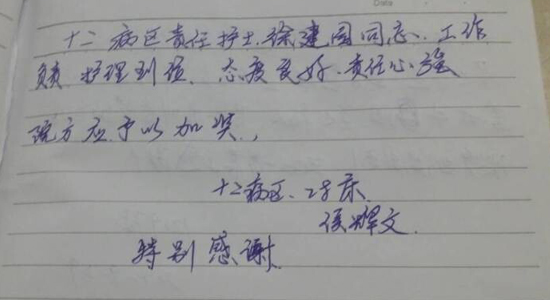 Date
十二病区责任护士.徐建国同志.工作
负责.护理到位.态度良好.责任心强
院方应予以加奖,
十二病区.28床.
侯辉文.
特别感谢.